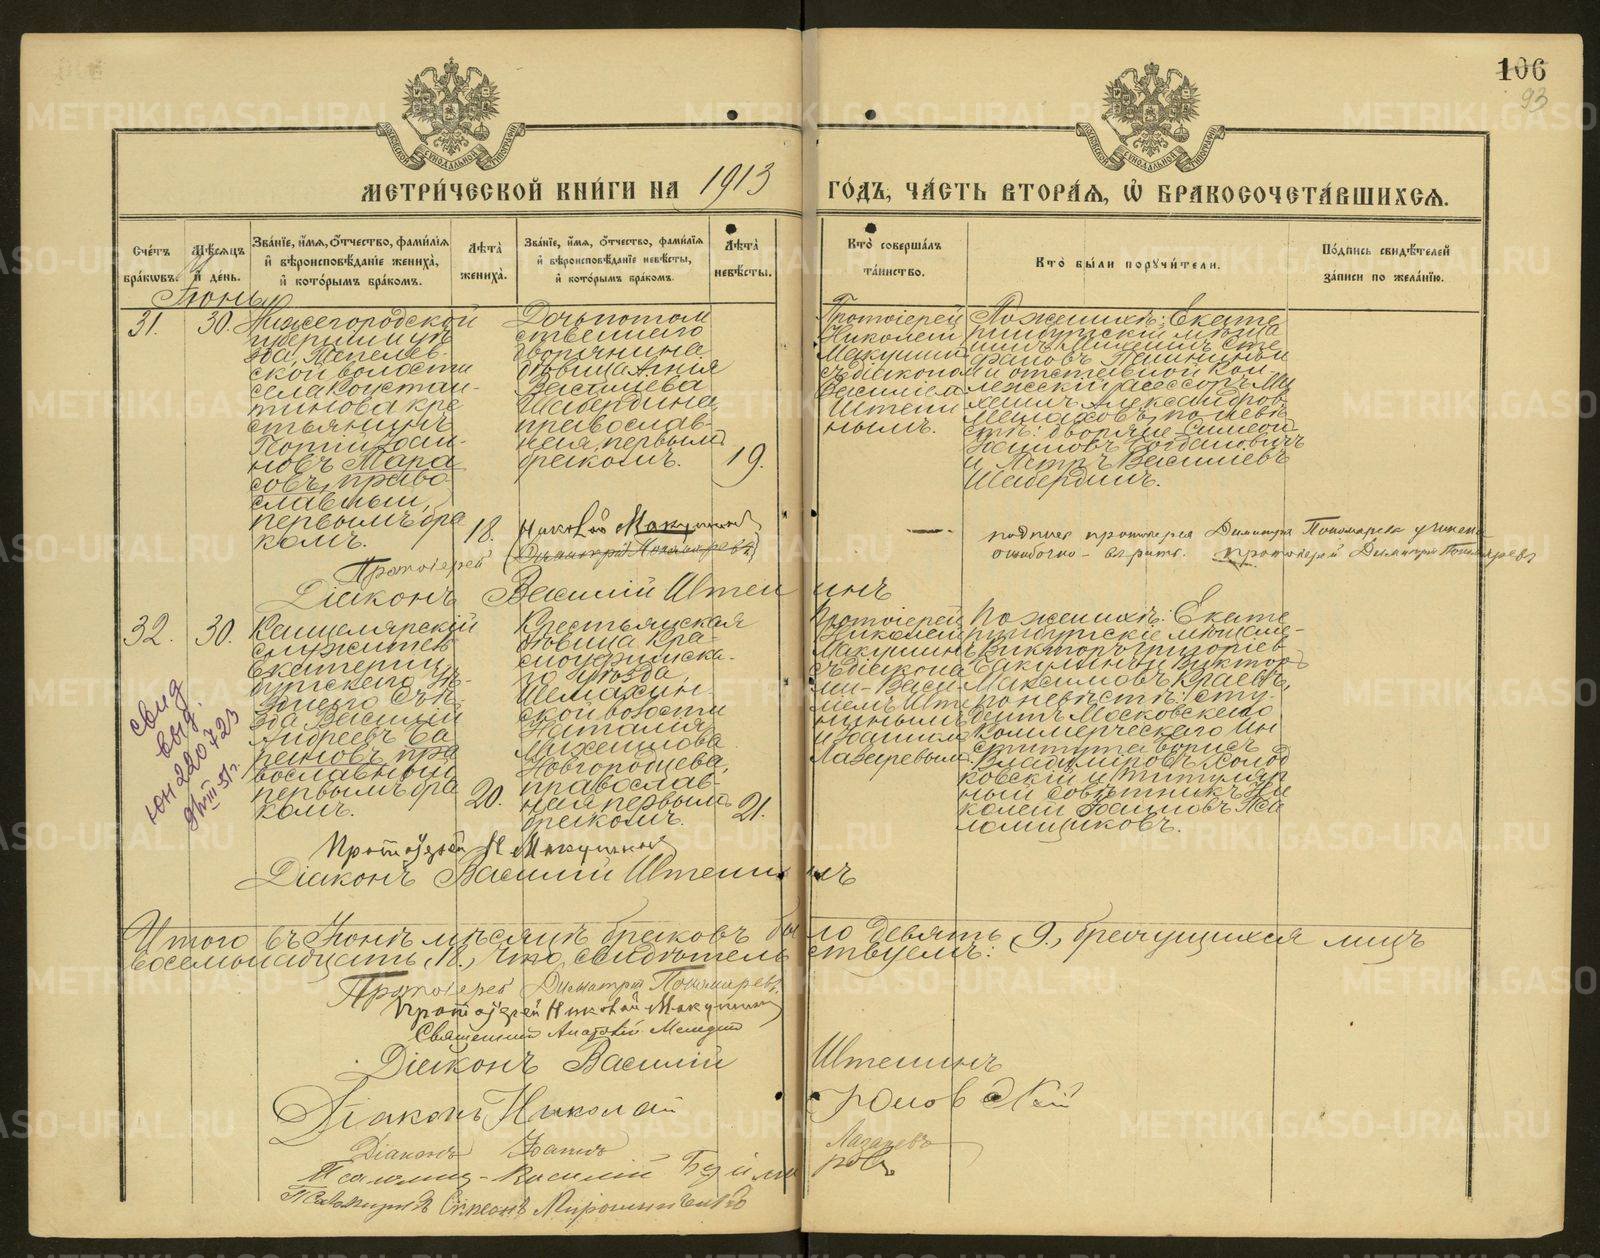 106
93
МЕТРИ́ЧЕСКОЙ КНИ́ГИ НА 1913 ГО́ДЪ, ЧА́СТЬ ВТОРА́Я, Ѡ БРАКОСОЧЕТА́ВШИХСЯ.
Сче́тъ бра́ковъ.
Мѣ́сяцъ и де́нь.
Зва́нїе, и́мя, ѻ́тчество, фами́лїя и вѣроисповѣ́данїе жениха̀, и кото́рымъ бра́комъ.
Лѣ́та жениха̀.
Зва́нїе, и́мя, ѻ́тчество, фами́лїя и вѣроисповѣ́данїе невѣ́сты, и кото́рымъ бра́комъ.
Лѣ́та невѣ́сты.
Кто̀ соверша́лъ та́инство.
Кто̀ бы́ли поручи́тели.
По́дпись свидѣ́телей за́писи по жела́нїю.
Іюнь
31.
30.
Нижегородской
губерніи и уѣз
да, Тепелев-
ской волости
села Констан-
тинова кре
стьянинъ
Іоан-
новъ Мара
совъ, право
славный,
первымъ бра
комъ.
18.
Дочь потом
ственнаго
дворянина
дѣвица Агнія
Васильева
Шабердина,
православ-
ная, первымъ
бракомъ.
19.
Протоіерей
Николай
Макушинъ
съ діакономъ
Василіем
Штени
нымъ.
По женихѣ: Екате
ринбургскій мѣща
нинъ Михаилъ Сте
фановъ
и отставной Кол-
лежскій асессоръ Ми
хаилъ Александров
по невѣ
стѣ: дворяне Симеон
Іоанновъ Богдановичъ
и Петръ Васильевъ
Шабердинъ.
Николай Макушинъ
Протоіерей (Димитрій Пономаревъ)
Діаконъ Василій Штенинъ
— подпись протоіерея Димитрія Пономарева учинена
ошибочно – вѣрить. Протоіерей Димитрій Пономаревъ
32.
30.
Канцелярскій
служитель
Екатерин-
бургскаго Уѣ-
зднаго Съѣ-
зда Василій
Андреевъ Ба
рановъ, пра
вославный
первымъ бра
комъ.
20.
Крестьянская
дѣвица Кра-
сноуфимска-
го уѣзда,
Шемахин-
ской волости
Наталія
Михаилова
Новгородцева,
православ-
ная первымъ
бракомъ.
21.
Протоіерей
Николай
Макушинъ
съ діакона
ми – Васи
ліемъ Ште
нинымъ
и Іоанномъ
Лазаревымъ
По женихѣ: Екате
ринбургскіе мѣщане –
Викторъ Григорьев
Бакулинъ и Викторъ
Максимовъ Краевъ,
по невѣстѣ: сту-
дентъ Московскаго
Коммерческаго Ин
ститута Борисъ
Владиміровъ Холод
ковскій и титуляр
ный совѣтникъ Ни
колай Іоанновъ Пса
ломщиковъ.
свид
выд.
юн 220723
9/VIII 51 г.
Протоіерей Н Макушинъ
Діаконъ Василій Штенинъ
Итого въ Іюнѣ мѣсяцѣ браковъ было девять, 9., брачущихся лицъ
восемнадцать, 18., что, свидѣтельствуемъ:
Протоіерей Димитрій Пономаревъ
Протоіерей Николай Макушинъ
Священникъ
Діаконъ Василій Штенинъ
Діаконъ Николай
Діаконъ Іоаннъ Лазаревъ
Псаломщ – Василій
Псаломщикъ Симеонъ
METRIKI.GASO-URAL.RU